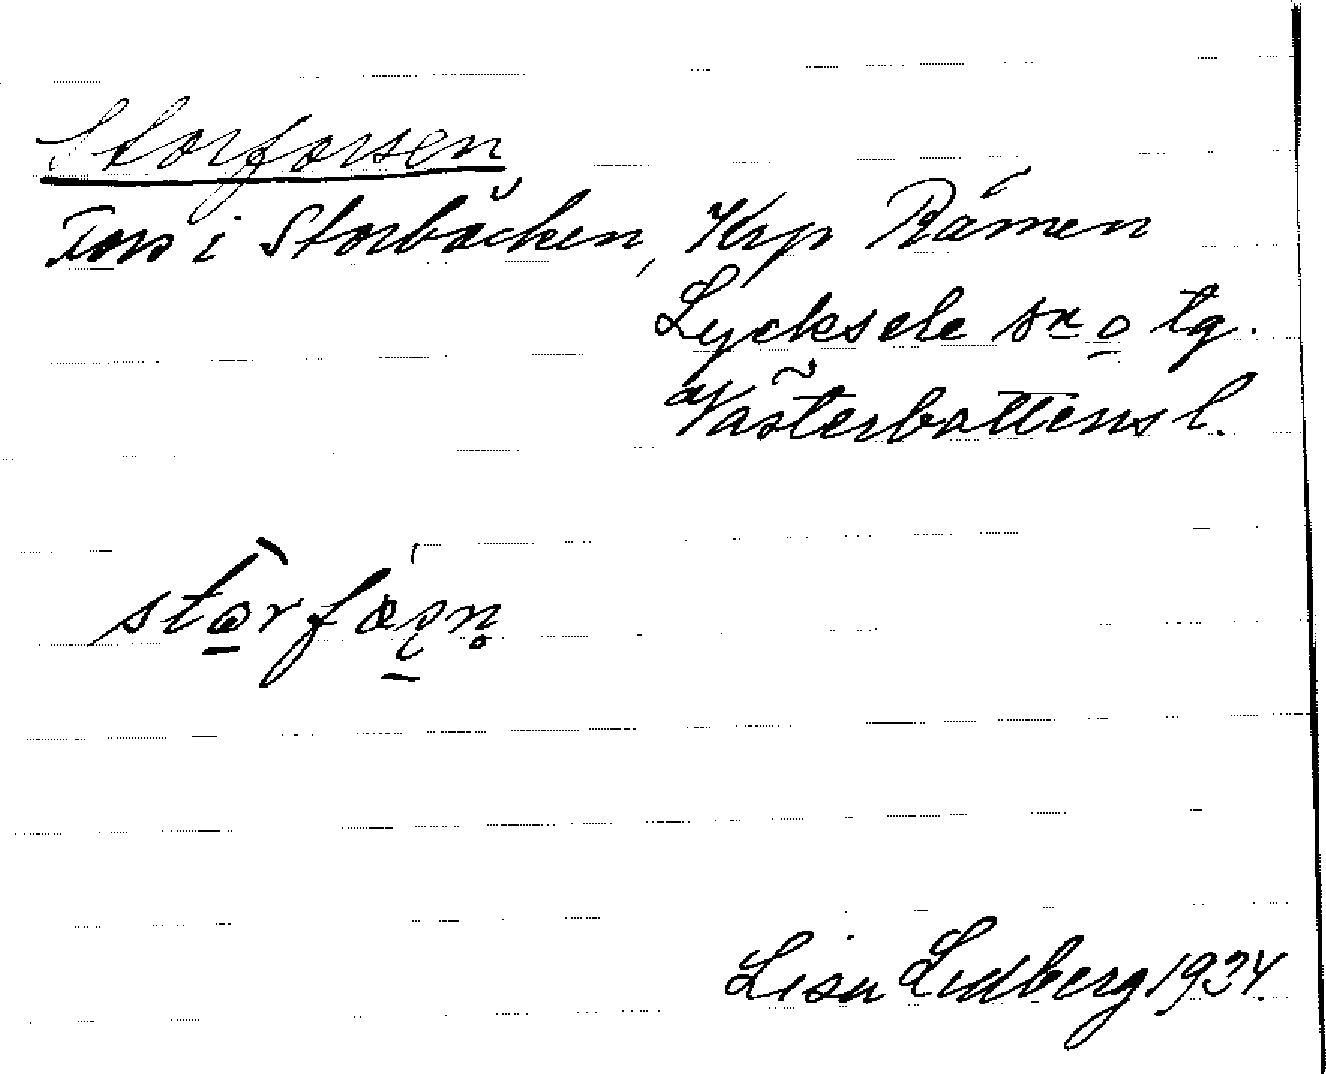 Storforsen
Fors i Storbäcken, Krp Råmen
Lycksele sn o tg.
Västerbottens l.
Lisa Lidberg 1924.